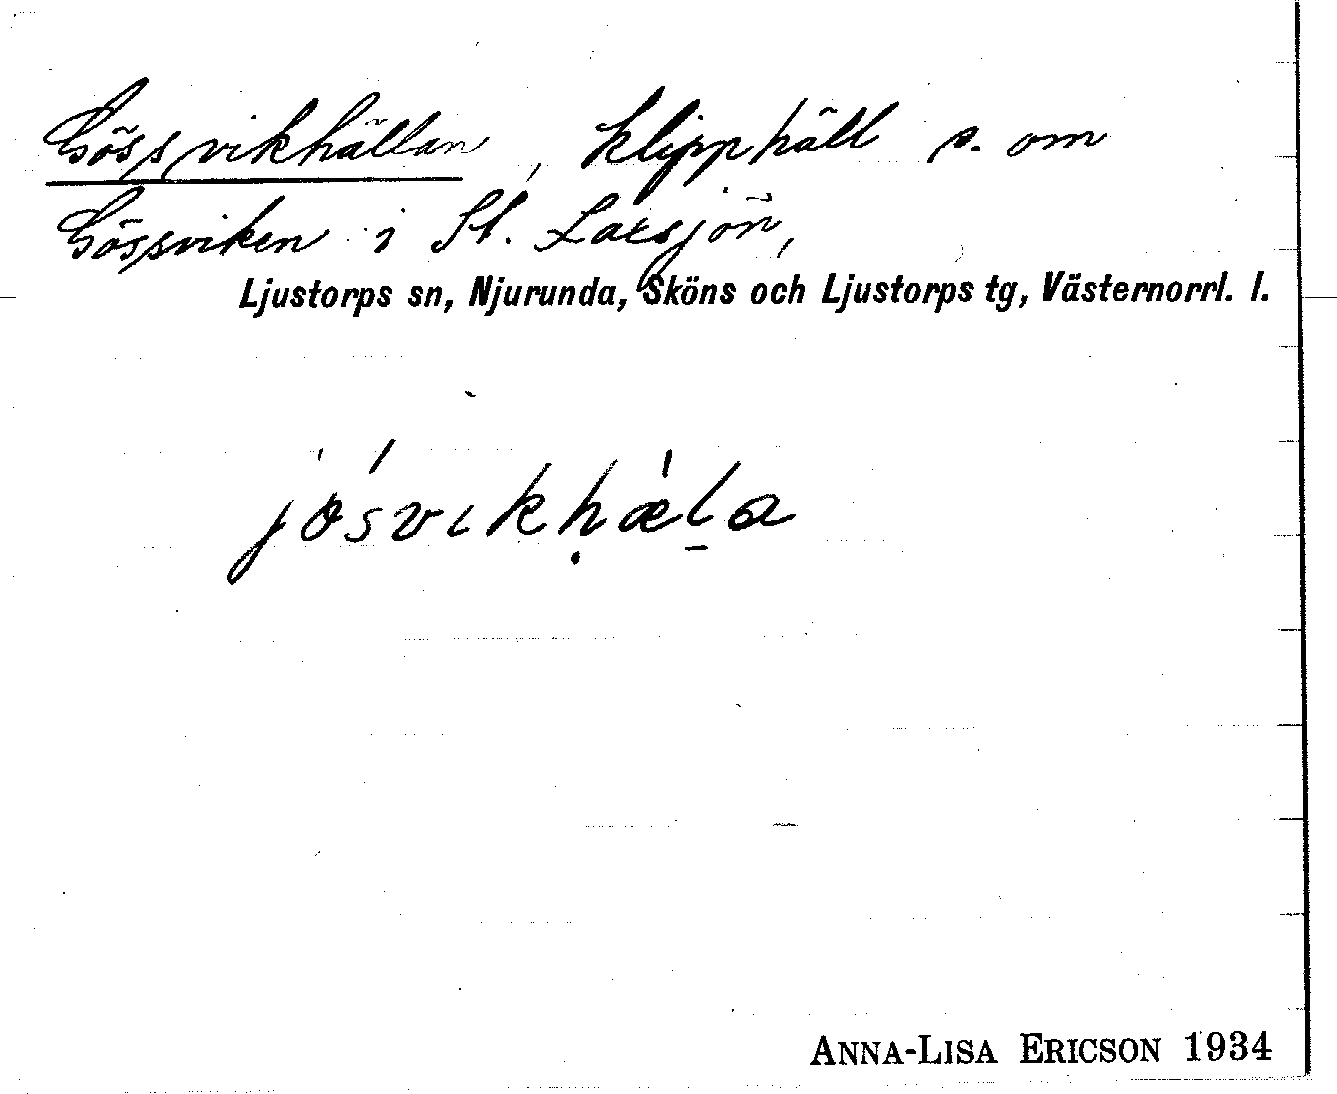 Gössvikhällan, klipphäll s. om
Gössviken i St. Laxsjön,
Ljustorps sn, Njurunda, Sköns och Ljustorps tg, Västernorrl. l.
jøsvikhæla
ANNA-LISA ERICSON 1934